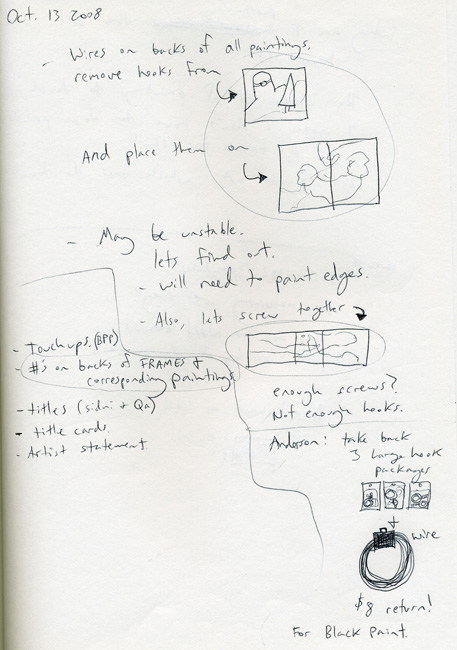 Oct. 13 2008
- Wires on backs of all paintings.
remove hooks from
And place them on
- May be unstable.
lets find out.
- will need to paint edges.
- Also, lets screw together
- Touchups. (BPP)
- #'s on backs of FRAMES +
corresponding paintings.
- titles (sidni + Qa)
- title cards.
- Artist statement
enough screws?
Not enough hooks.
Anderson: take back
3 large hook
packages
+
wire
$8 return!
For Black Paint.